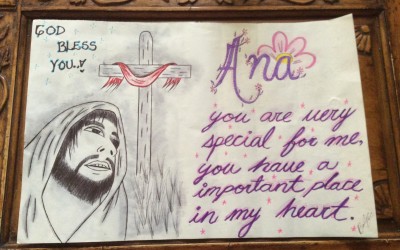 GOD
BLESS
YOU..!
Ana
you are very
special for me,
you have a
important place
in my heart.